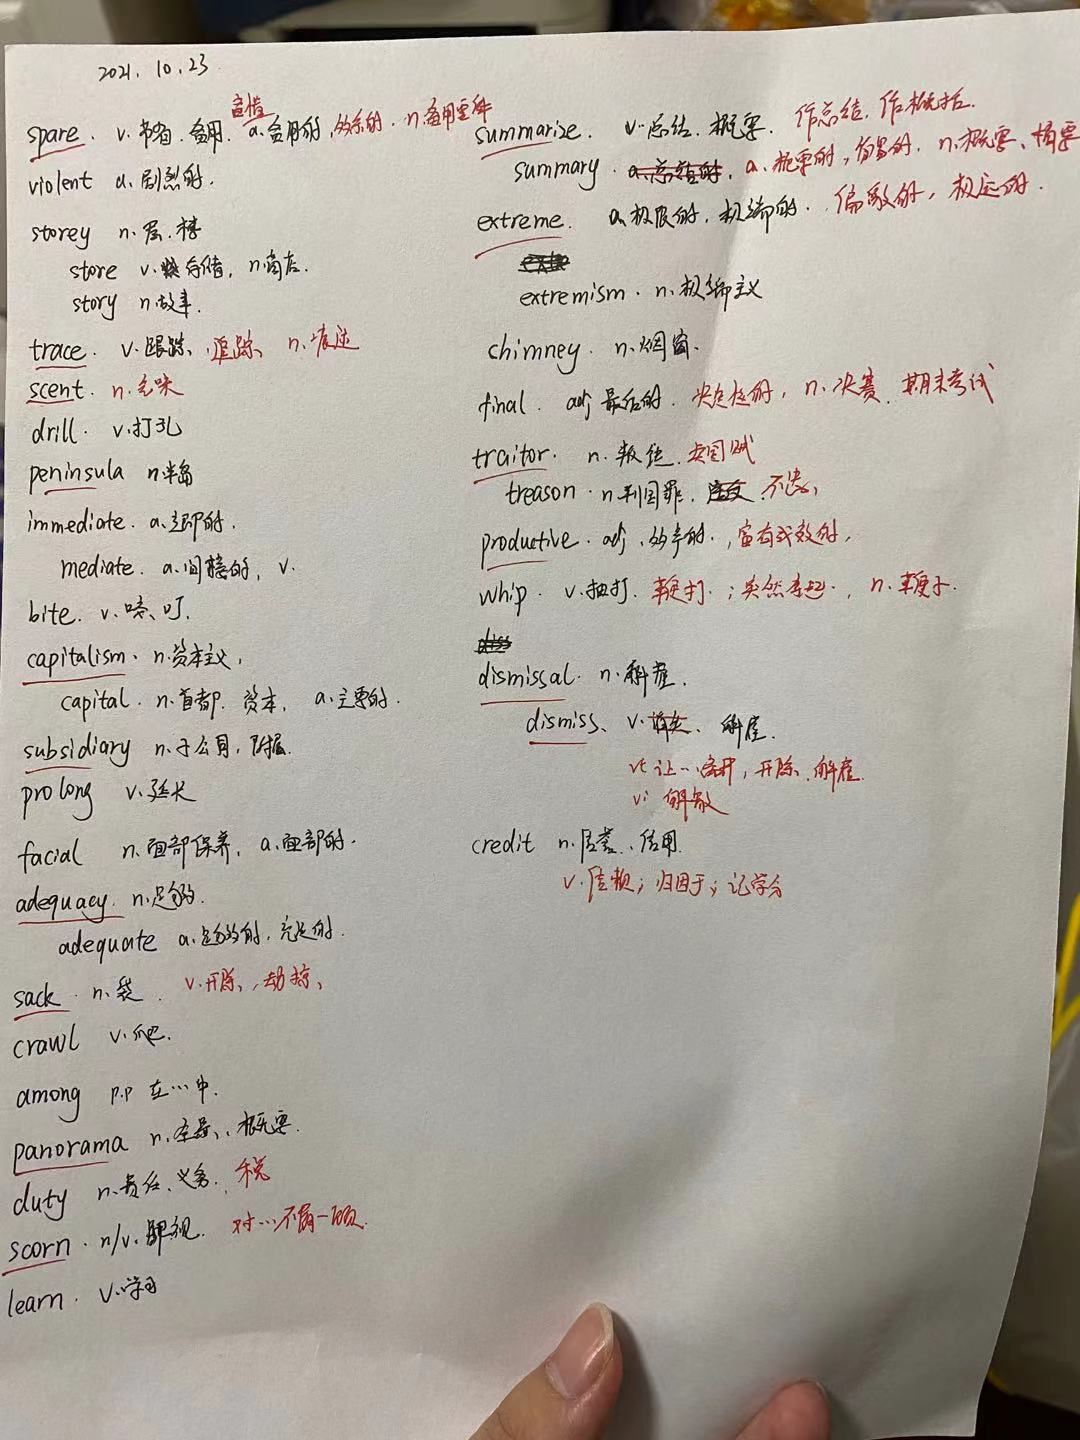 2021. 10. 23
spare. v. 节省. 备用. 吝惜 a. 备用的, 多余的. n. 备用零件
violent a. 剧烈的.
storey n. 层. 楼
store v. 存储, n. 商店.
story n. 故事.
trace. v. 跟踪、追踪、 n. 痕迹
scent. n. 气味
drill. v. 打孔
peninsula n 半岛
immediate. a. 立即的.
mediate. a. 间接的, v.
bite. v. 咬、叮.
capitalism. n. 资本主义,
capital. n. 首都. 资本, a. 主要的.
subsidiary n. 子公司, 附属.
prolong v. 延长
facial n. 面部保养, a. 面部的.
adequacy. n. 足够.
adequate a. 足够的, 充足的.
sack. n. 袋. v. 开除、劫掠、
crawl v. 爬.
among p.p 在…中.
panorama n. 全景、概要.
duty n. 责任、义务. 税
scorn. n/v. 鄙视. 对…不屑一顾.
learn. v. 学习
summarise. v. 总结. 概要. 作总结. 作概括.
summary. a. 概要的, 简易的. n. 概要、摘要
extreme. a. 极限的. 极端的. 偏激的, 极远的.
extremism. n. 极端主义
chimney. n. 烟囱.
final. adj 最后的. 决定性的, n. 决赛. 期末考试
traitor. n. 叛徒. 卖国贼
treason. n 判国罪. 不忠,
productive. adj. 多产的. , 富有成效的,
whip. v. 抽打. 鞭打. ; 突然拿起. , n. 鞭子.
dismissal. n. 解雇.
dismiss、 v. 解雇.
vt 让…离开, 开除. 解雇.
vi 解散
credit n. 信誉、信用.
v. 信赖; 归因于; 记学分